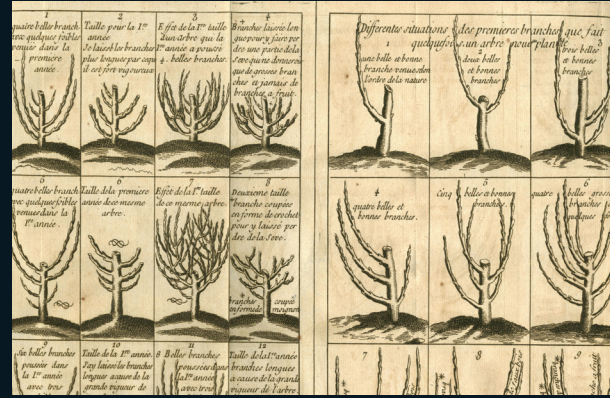 1
quatre belles branch
avec quelques foibles
venües dans la
premiere
année.
2
Taille pour la 1.re
année
Je laisse les branches
plus longues parcequ
il est fort vigoureux
3
Effet de la 1.re taille
d'un arbre qui la
1.re année a poussé
4. belles branches.
4
Branches laissée lon
gue pour y faire per
dre une partie de la
Seve qui ne donneroit
que de grosses bran
ches et jamais de
branches a fruit.
5
quatre belles branch
avec quelques foibles
venues dans la
1.re année.
6
Taille de la premiere
année de ce mesme
arbre.
7
Effet de la 1.re taille
de ce mesme arbre.
8
Deuxieme taille
branche coupées
en forme de crochet
pour y laisse per
dre de la Seve.
branche
en forme de
coupée
moignon
9
Six belles branches
poussée dans
la 1.re année
avec trois
10
Taille de la 1.re année.
J'ay laisse les branches
longues a cause de la
grande vigueur de
11
8 Belles branches
poussées dans
la 1.re année
avec trois
12
Taille de la 1.re année
branches longues
a cause de la grande
vigueur de l'arbre.
Differentes situations des premieres branches que fait
quelquefois un arbre nouv. planté
1
une belle et bonne
branche venue selon
l'ordre de la nature
2
deux belles
et bonnes
branches
3
trois belles
et bonnes
branches
4
quatre belles et
bonnes branches.
5
Cinq belles et bonnes
branches.
6
quatre belles gros
branches
quelques
7
8
9